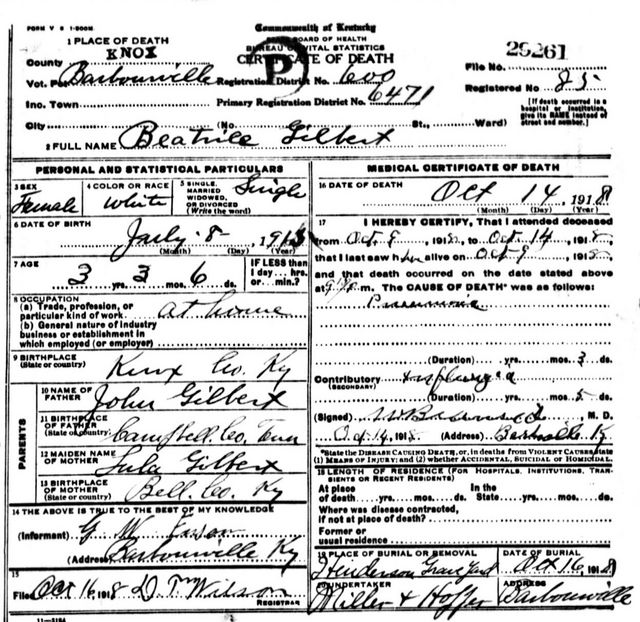 FORM V S 1-500M
Commonwealth of Kentucky
BOARD OF HEALTH
BUREAU OF VITAL STATISTICS
CERTIFICATE OF DEATH
P
1 PLACE OF DEATH
County KNOX
Vot. Pct. Barbourville Registration District No. 600
Inc. Town Primary Registration District No. 6471
City (No. St., Ward)
File No. 25261
Registered No. 85
[If death occurred in a hospital or institution, give its NAME instead of street and number.]
2 FULL NAME Beatrice Gilbert
PERSONAL AND STATISTICAL PARTICULARS
3 SEX Female
4 COLOR OR RACE White
5 SINGLE, MARRIED WIDOWED, OR DIVORCED (Write the word) Single
6 DATE OF BIRTH July 8
(Month) (Day) (Year)
7 AGE 3 yrs. 3 mos. 6 ds.
IF LESS than 1 day... hrs. or... min.?
8 OCCUPATION
(a) Trade, profession, or particular kind of work at home
(b) General nature of industry business or establishment in which employed (or employer)
9 BIRTHPLACE (State or country) Knox Co. Ky
PARENTS
10 NAME OF FATHER John Gilbert
11 BIRTHPLACE OF FATHER (State or country) Campbell Co. Tenn
12 MAIDEN NAME OF MOTHER Lula Gilbert
13 BIRTHPLACE OF MOTHER (State or country) Bell Co. Ky
14 THE ABOVE IS TRUE TO THE BEST OF MY KNOWLEDGE
(Informant) G W
(Address) Barbourville Ky
15
Filed Oct 16, 1918 D T Wilson
REGISTRAR
11-3184
MEDICAL CERTIFICATE OF DEATH
16 DATE OF DEATH Oct 14 1918
(Month) (Day) (Year)
17 I HEREBY CERTIFY, That I attended deceased
from Oct 9, 1918, to Oct 14, 1918,
that I last saw h alive on Oct 9, 1918
and that death occurred on the date stated above
at m. The CAUSE OF DEATH* was as follows:
Pneumonia
(Duration) yrs. mos. 3 ds.
Contributory (SECONDARY) Influenza
(Duration) yrs. mos. 5 ds.
(Signed) M. D.
Oct 14, 1918 (Address) Barbourville Ky.
*State the DISEASE CAUSING DEATH, or, in deaths from VIOLENT CAUSES, state (1) MEANS OF INJURY; and (2) whether ACCIDENTAL, SUICIDAL or HOMICIDAL.
18 LENGTH OF RESIDENCE (FOR HOSPITALS, INSTITUTIONS, TRANSIENTS OR RECENT RESIDENTS)
At place of death yrs. mos. ds. In the State yrs. mos. ds.
Where was disease contracted, if not at place of death?
Former or usual residence
19 PLACE OF BURIAL OR REMOVAL Henderson Grave Yard
DATE OF BURIAL Oct 16, 1918
20 UNDERTAKER Miller &
ADDRESS Barbourville